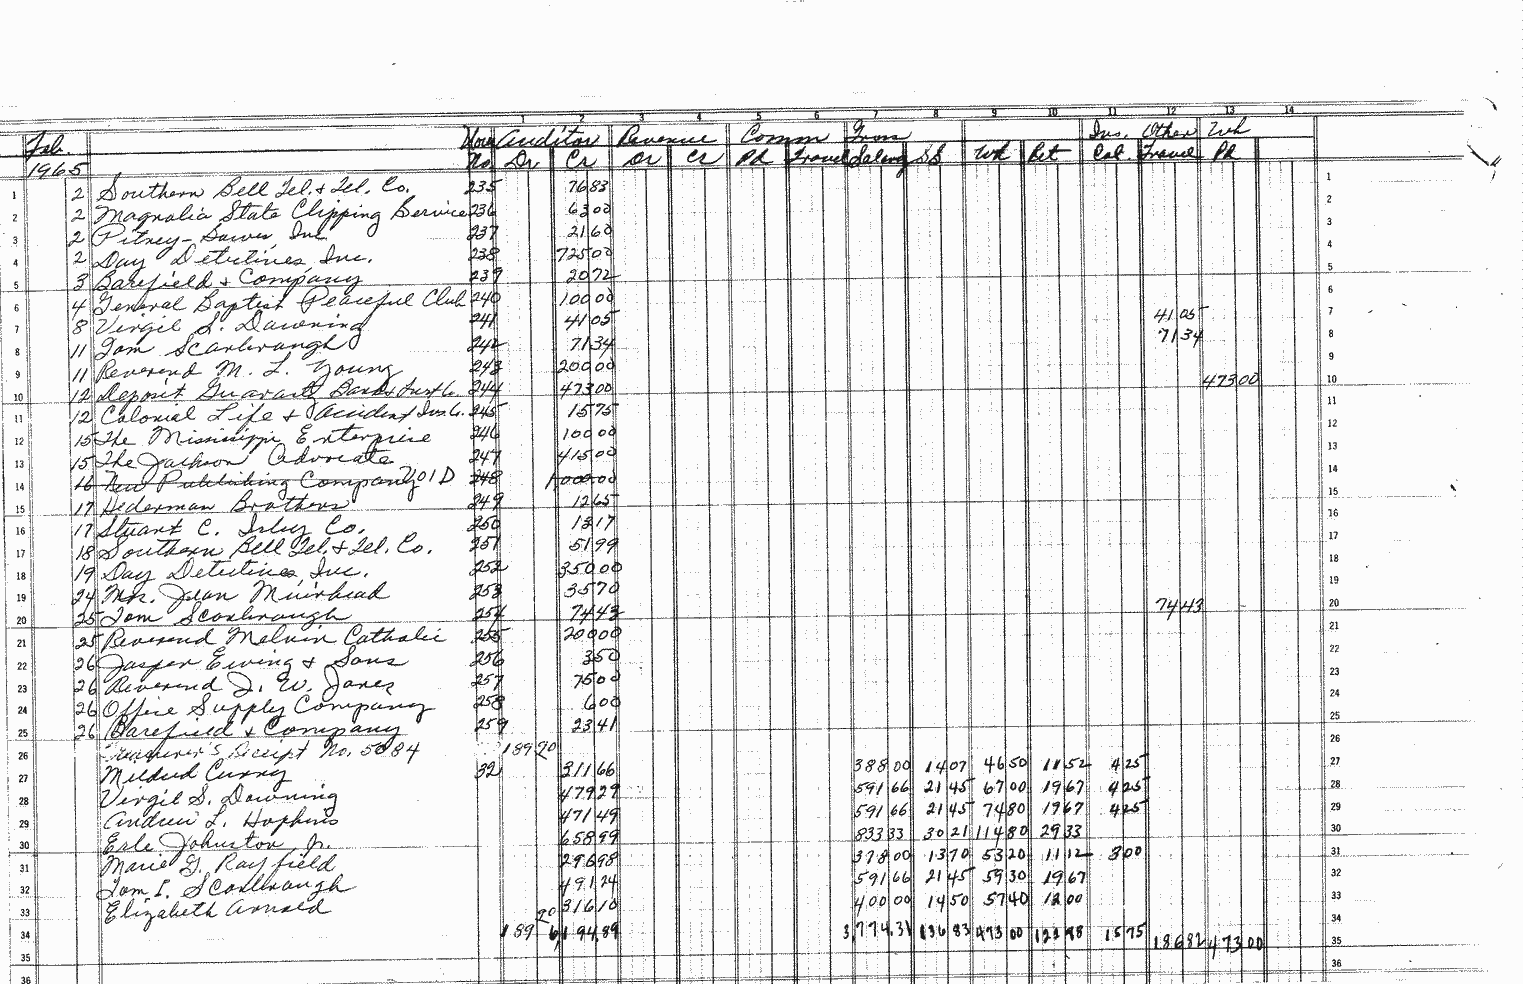 1 2 3 4 5 6 7 8 9 10 11 12 13 14
Feb. Auditor Revenue Comm Gross Ins. Other Wh
1965 No Dr Cr Dr Cr Pd Travel Salary SS Wh Ret Col. Travel Pd
1 2 Southern Bell Tel. & Tel. Co. 235 7683 1
2 2 Magnolia State Clipping Service 236 6300 2
3 2 Pitney-Bowes, Inc. 237 2160 3
4 2 Day Detectives Inc. 238 72500 4
5 3 Barefield & Company 239 2072 5
6 4 General Baptist Peaceful Club 240 10000 6
7 8 Virgil S. Downing 241 4105 4105 7
8 11 Tom Scarbrough 242 7134 7134 8
9 11 Reverend M. L. Young 243 20000 9
10 12 Deposit Guaranty Bank & Trust Co. 244 47300 47300 10
11 12 Colonial Life & Accident Ins. Co. 245 1575 11
12 15 The Mississippi Enterprise 246 10000 12
13 15 The Jackson Advocate 247 41500 13
14 16 Publishing Company VOID 248 100000 14
15 17 Hederman Brothers 249 1265 15
16 17 Stuart C. Irby Co. 250 1317 16
17 18 Southern Bell Tel. & Tel. Co. 251 5199 17
18 19 Day Detectives, Inc. 252 35000 18
19 24 Mrs. Jean Muirhead 253 3570 19
20 25 Tom Scarbrough 254 7443 7443 20
21 25 Reverend Melvin Catholic 255 20000 21
22 26 Jasper Ewing & Sons 256 350 22
23 26 Reverend J. W. Jones 257 7500 23
24 26 Office Supply Company 258 600 24
25 26 Barefield & Company 259 2341 25
26 Treasurer's Receipt No. 5084 18920 26
27 Mildred Curry 32 31166 38800 1407 4650 1152 425 27
28 Virgil S. Downing 47929 59166 2145 6700 1967 425 28
29 Andrew L. Hopkins 47149 59166 2145 7480 1967 425 29
30 Erle Johnston Jr. 65899 83333 3021 11480 2933 30
31 Marie G. Rayfield 29698 37800 1370 5320 1112 300 31
32 Tom L. Scarbrough 49124 59166 2145 5930 1967 32
33 Elizabeth Arnold 31610 40000 1450 5740 1200 33
34 189 20 6,194.89 3,774.31 136 83 473 00 122 98 1575 18682 47300 34
35 35
36 36